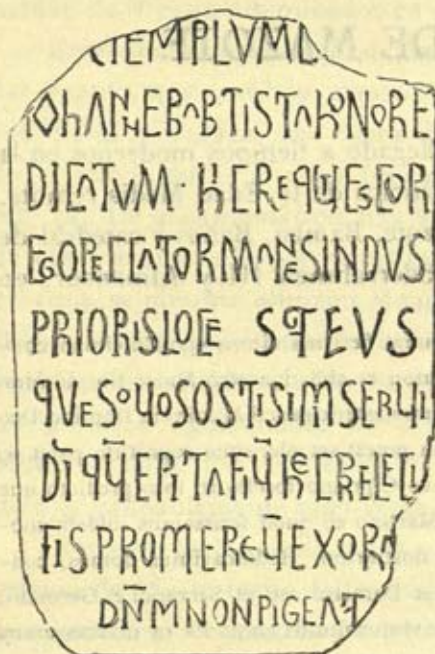 TEMPLVM
IOhANNE BABTISTA hONORE
DICATVM · hERE QUIESCOR
EGO PECCATOR MANESINDVS
PRIORIS LOCE
QVESO VOS OSTISIM SERVI
DI QV EPITAFIV hEC RELEGI
TIS PROMERE
DNM NON PIGEAT